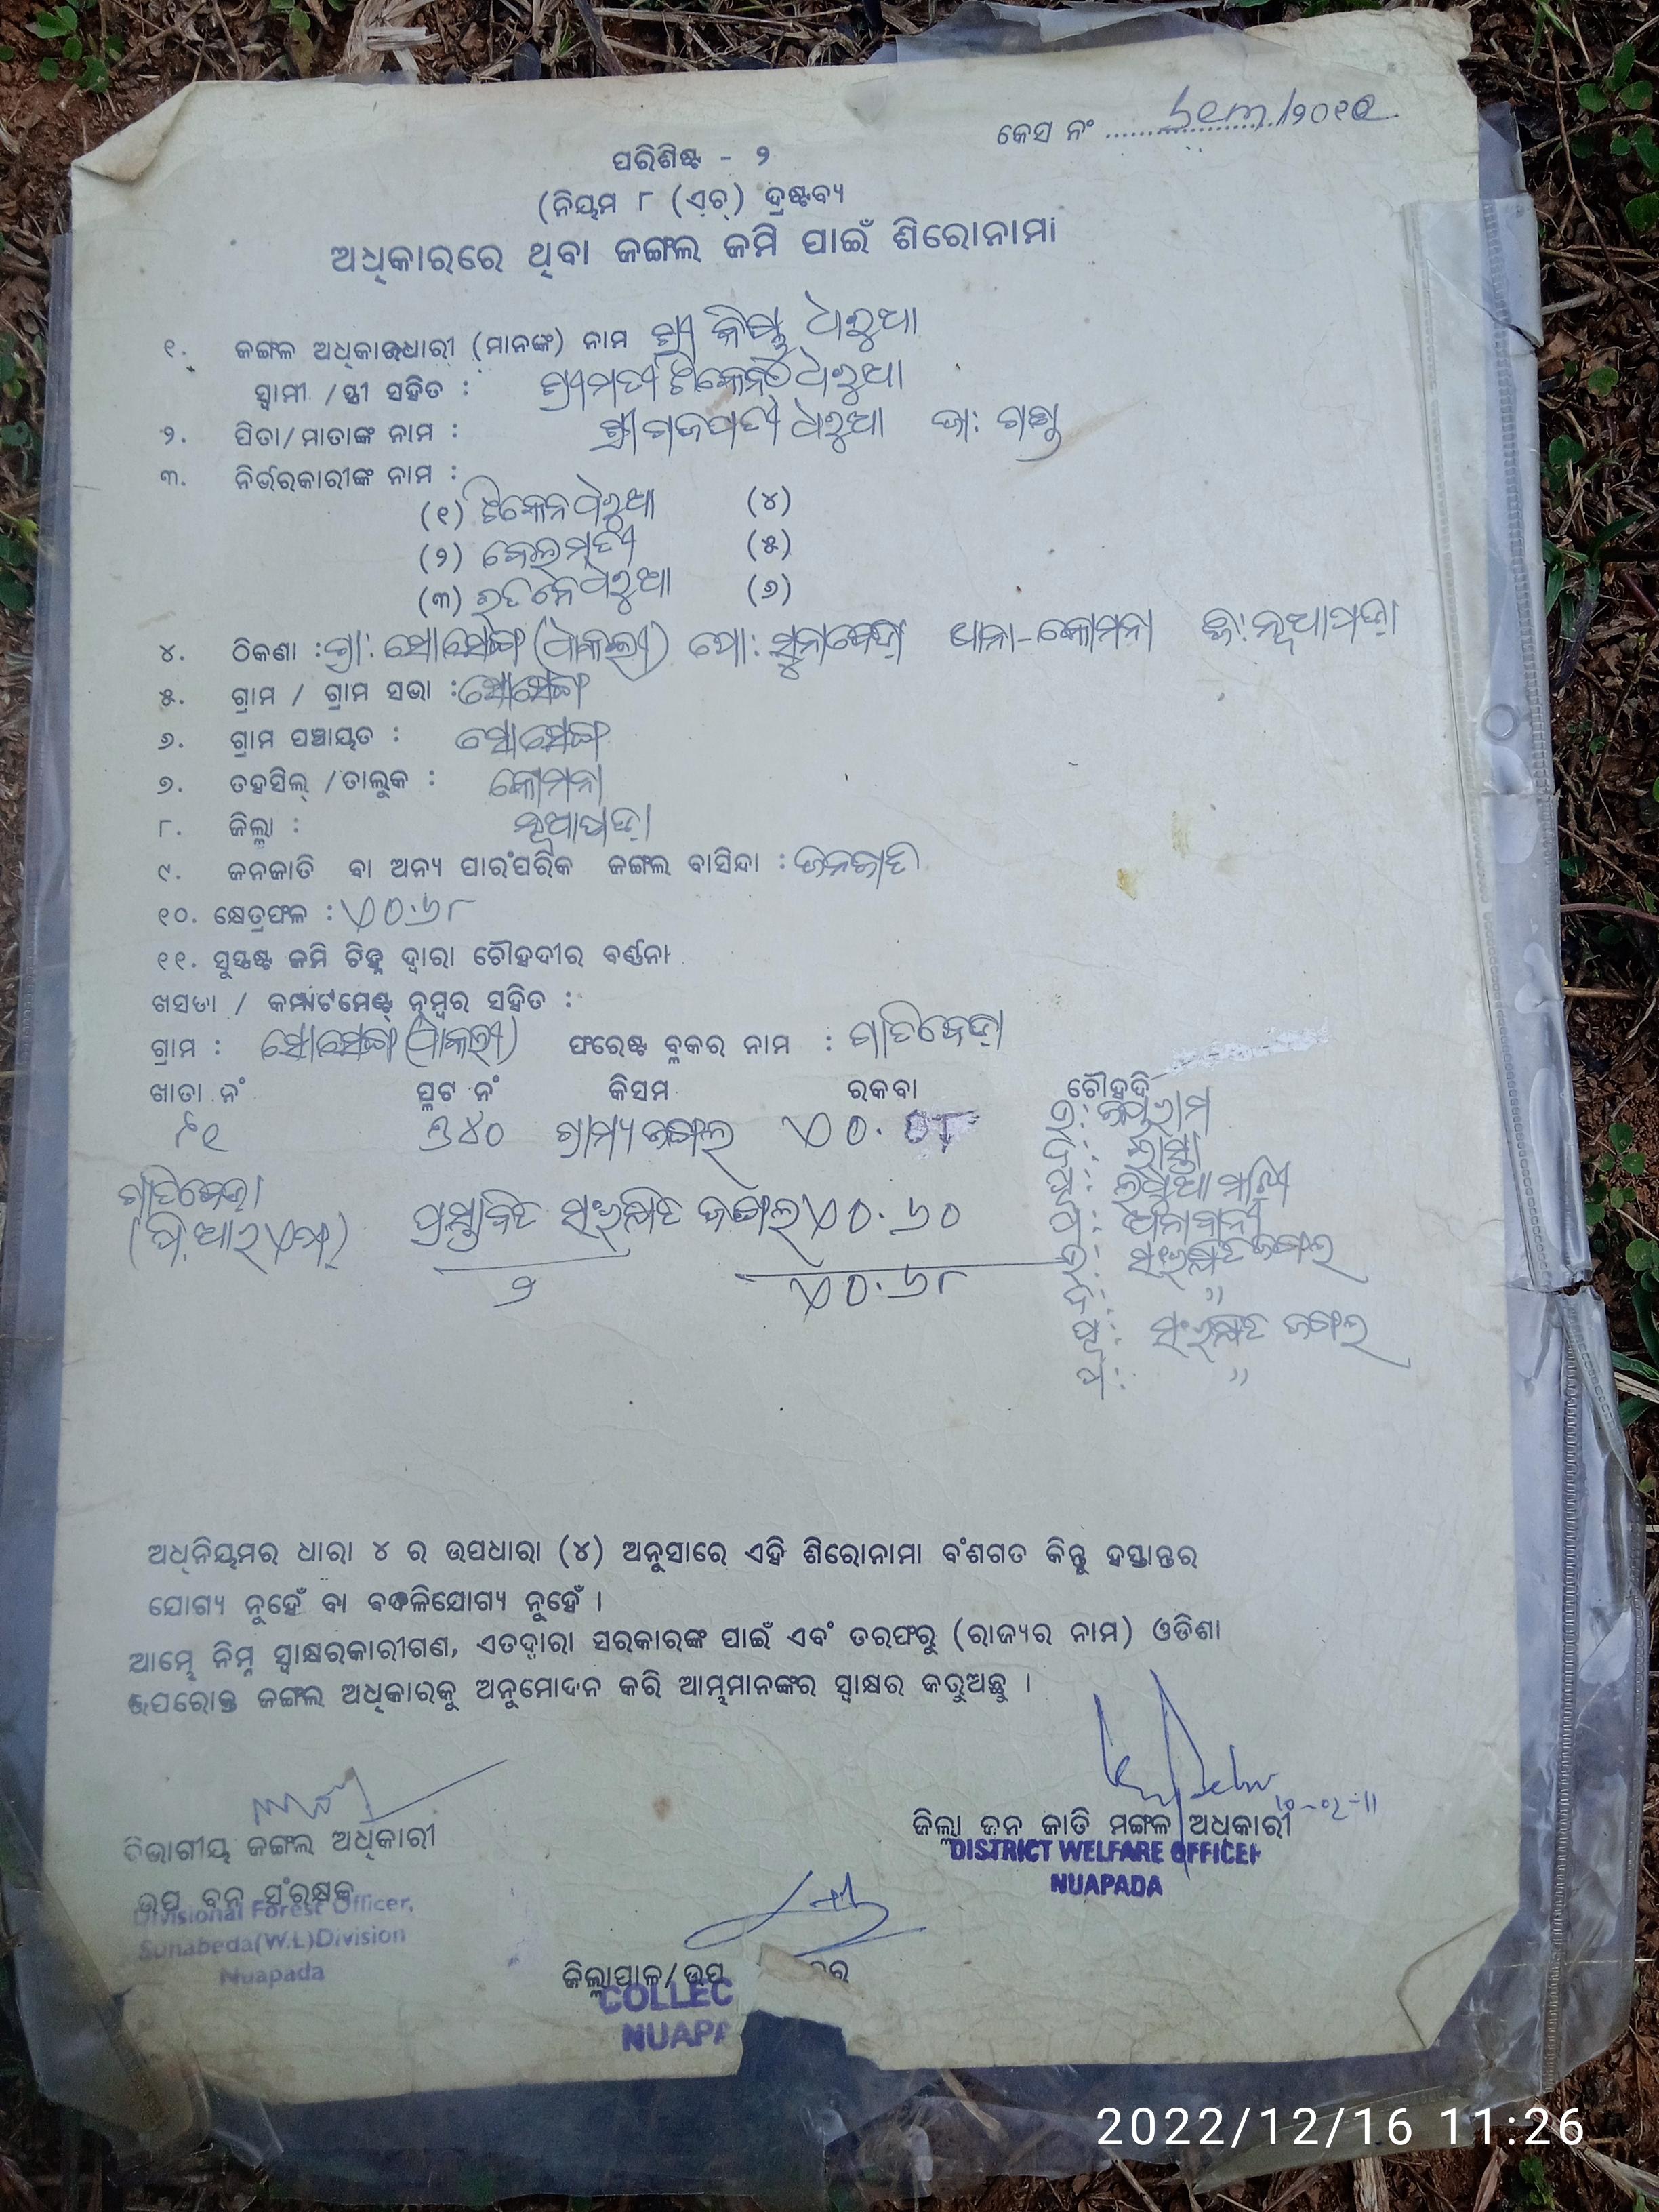 କେସ ନଂ ............/୨୦୧୧
ପରିଶିଷ୍ଟ - ୨
(ନିୟମ ୮ (ଏଚ୍) ଦ୍ରଷ୍ଟବ୍ୟ
ଅଧିକାରରେ ଥିବା ଜଙ୍ଗଲ ଜମି ପାଇଁ ଶିରୋନାମା
୧. ଜଙ୍ଗଳ ଅଧିକାରଧାରୀ (ମାନଙ୍କ) ନାମ ଶ୍ରୀ ଧରୁଆ
ସ୍ୱାମୀ /ସ୍ତ୍ରୀ ସହିତ : ଶ୍ରୀମତୀ ଟିକେନ ଧରୁଆ
୨. ପିତା/ମାତାଙ୍କ ନାମ : ଶ୍ରୀ ଗଜପତି ଧରୁଆ ଜା: ଗଣ୍ଡ
୩. ନିର୍ଭରକାରୀଙ୍କ ନାମ :
(୧) ଟିକେନ ଧରୁଆ (୪)
(୨) (୫)
(୩) ଧରୁଆ (୬)
୪. ଠିକଣା : ଗ୍ରା: ସୋସେଙ୍ଗ ପୋ: ସୁନାବେଡ଼ା ଥାନା-କୋମନା ଜି: ନୂଆପଡ଼ା
୫. ଗ୍ରାମ / ଗ୍ରାମ ସଭା : ସୋସେଙ୍ଗ
୬. ଗ୍ରାମ ପଞ୍ଚାୟତ : ସୋସେଙ୍ଗ
୭. ତହସିଲ୍ /ତାଲୁକ : କୋମନା
୮. ଜିଲ୍ଲା : ନୂଆପଡ଼ା
୯. ଜନଜାତି ବା ଅନ୍ୟ ପାରଂପରିକ ଜଙ୍ଗଲ ବାସିନ୍ଦା : ଜନଜାତି
୧୦. କ୍ଷେତ୍ରଫଳ : ଏ0.୬୮
୧୧. ସୁସ୍ପଷ୍ଟ ଜମି ଚିହ୍ନ ଦ୍ୱାରା ଚୌହଦୀର ବର୍ଣ୍ଣନା
ଖସଡା / କମ୍ପାର୍ଟମେଣ୍ଟ୍ ନମ୍ବର ସହିତ :
ଗ୍ରାମ : ସୋସେଙ୍ଗ ଫରେଷ୍ଟ ବ୍ଲକର ନାମ : ଗାତିବେଡ଼ା
ଖାତା ନଂ ପ୍ଲଟ ନଂ କିସମ ରକବା ଚୌହଦି
୩୪୦ ଗ୍ରାମ୍ୟ ଜଙ୍ଗଲ ଏ0.୦୮ ଉ: ଜୟରାମ
ଦ: ରାସ୍ତା
ଗାତିବେଡ଼ା
(ପି.ଆର.ଏଫ୍) ପ୍ରସ୍ତାବିତ ସଂରକ୍ଷିତ ଜଙ୍ଗଲ ଏ0.୬0
ଉ: ସଂରକ୍ଷିତ ଜଙ୍ଗଲ
୨ ଏ0.୬୮
ଦ: "
ପୂ: ସଂରକ୍ଷିତ ଜଙ୍ଗଲ
ପ: "
ଅଧିନିୟମର ଧାରା ୪ ର ଉପଧାରା (୪) ଅନୁସାରେ ଏହି ଶିରୋନାମା ବଂଶଗତ କିନ୍ତୁ ହସ୍ତାନ୍ତର
ଯୋଗ୍ୟ ନୁହେଁ ବା ବଦଳିଯୋଗ୍ୟ ନୁହେଁ ।
ଆମ୍ଭେ ନିମ୍ନ ସ୍ୱାକ୍ଷରକାରୀଗଣ, ଏତଦ୍ୱାରା ସରକାରଙ୍କ ପାଇଁ ଏବଂ ତରଫରୁ (ରାଜ୍ୟର ନାମ) ଓଡିଶା
ଉପରୋକ୍ତ ଜଙ୍ଗଲ ଅଧିକାରକୁ ଅନୁମୋଦନ କରି ଆମ୍ଭମାନଙ୍କର ସ୍ୱାକ୍ଷର କରୁଅଛୁ ।
ବିଭାଗୀୟ ଜଙ୍ଗଲ ଅଧିକାରୀ
ଉପ ବନ ସଂରକ୍ଷକ
Divisional Forest Officer,
Sunabeda(W.L)Division
Nuapada
ଜିଲ୍ଲା ଜନ ଜାତି ମଙ୍ଗଳ ଅଧିକାରୀ
DISTRICT WELFARE OFFICER
NUAPADA
ଜିଲ୍ଲାପାଳ/ଉପ
COLLEC
NUAPA
2022/12/16 11:26